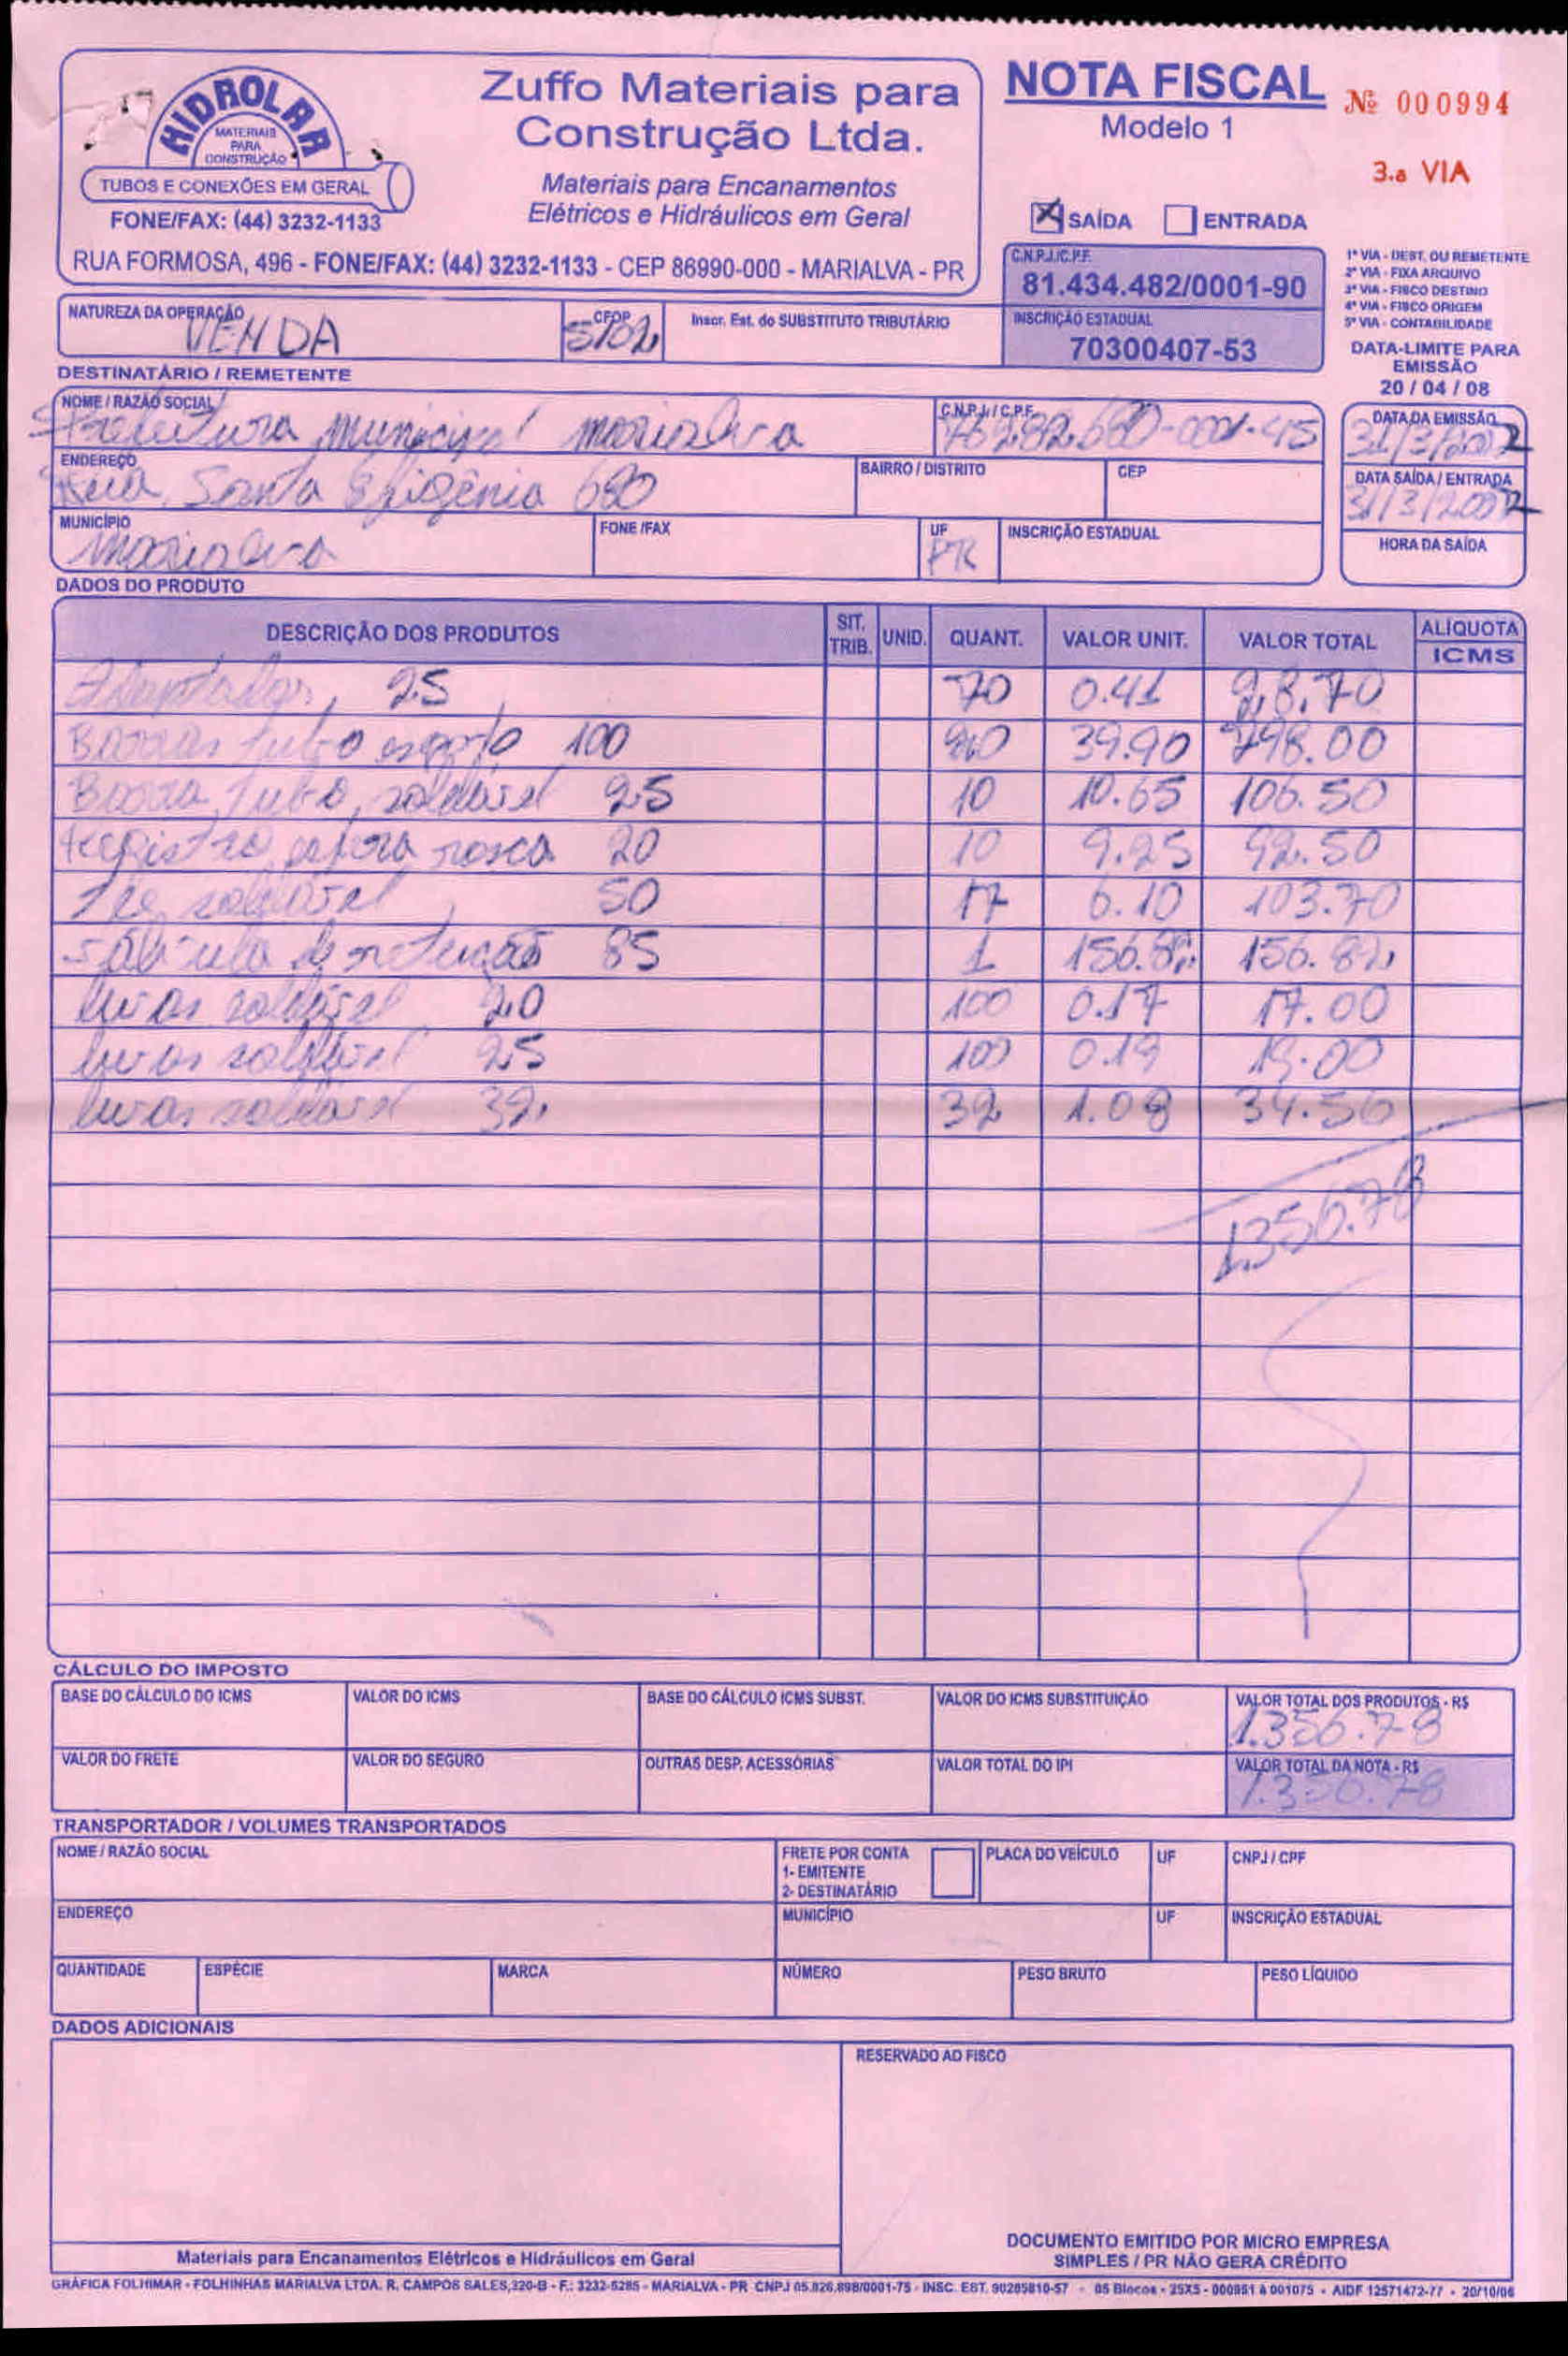 HIDROLAR
MATERIAIS
PARA
CONSTRUÇÃO
TUBOS E CONEXÕES EM GERAL
FONE/FAX: (44) 3232-1133
Zuffo Materiais para
Construção Ltda.
Materiais para Encanamentos
Elétricos e Hidráulicos em Geral
RUA FORMOSA, 496 - FONE/FAX: (44) 3232-1133 - CEP 86990-000 - MARIALVA - PR
NOTA FISCAL
Modelo 1
Nº 000994
3.a VIA
X SAÍDA ENTRADA
C.N.P.J./C.P.F.
81.434.482/0001-90
INSCRIÇÃO ESTADUAL
70300407-53
1ª VIA - DEST. OU REMETENTE
2ª VIA - FIXA ARQUIVO
3ª VIA - FISCO DESTINO
4ª VIA - FISCO ORIGEM
5ª VIA - CONTABILIDADE
DATA-LIMITE PARA
EMISSÃO
20 / 04 / 08
NATUREZA DA OPERAÇÃO
VENDA
CFOP
5102
Inscr. Est. do SUBSTITUTO TRIBUTÁRIO
DESTINATÁRIO / REMETENTE
NOME / RAZÃO SOCIAL
Prefeitura municipal marialva
C.N.P.J. / C.P.F.
DATA DA EMISSÃO
31/3/2007
ENDEREÇO
Rua Santa Efigênia 680
BAIRRO / DISTRITO
CEP
DATA SAÍDA / ENTRADA
31/3/2007
MUNICÍPIO
marialva
FONE /FAX
UF
PR
INSCRIÇÃO ESTADUAL
HORA DA SAÍDA
DADOS DO PRODUTO
DESCRIÇÃO DOS PRODUTOS SIT. TRIB. UNID. QUANT. VALOR UNIT. VALOR TOTAL ALÍQUOTA ICMS
Adaptador 25 70 0.41 28.70
Barras tubo esgoto 100 20 39.90 798.00
Barra tubo soldável 25 10 10.65 106.50
Registro esfera rosca 20 10 9.25 92.50
Tee soldável 50 17 6.10 103.70
válvula de retenção 85 1 156.82 156.82
luvas soldável 20 100 0.17 17.00
luvas soldável 25 100 0.19 19.00
luvas soldável 32 32 1.08 34.56
1356.78
CÁLCULO DO IMPOSTO
BASE DO CÁLCULO DO ICMS
VALOR DO ICMS
BASE DO CÁLCULO ICMS SUBST.
VALOR DO ICMS SUBSTITUIÇÃO
VALOR TOTAL DOS PRODUTOS - R$
1.356.78
VALOR DO FRETE
VALOR DO SEGURO
OUTRAS DESP. ACESSÓRIAS
VALOR TOTAL DO IPI
VALOR TOTAL DA NOTA - R$
1.356.78
TRANSPORTADOR / VOLUMES TRANSPORTADOS
NOME / RAZÃO SOCIAL
FRETE POR CONTA
1- EMITENTE
2- DESTINATÁRIO
PLACA DO VEÍCULO
UF
CNPJ / CPF
ENDEREÇO
MUNICÍPIO
UF
INSCRIÇÃO ESTADUAL
QUANTIDADE
ESPÉCIE
MARCA
NÚMERO
PESO BRUTO
PESO LÍQUIDO
DADOS ADICIONAIS
RESERVADO AO FISCO
Materiais para Encanamentos Elétricos e Hidráulicos em Geral
DOCUMENTO EMITIDO POR MICRO EMPRESA
SIMPLES / PR NÃO GERA CRÉDITO
GRÁFICA FOLHIMAR - FOLHINHAS MARIALVA LTDA. R. CAMPOS SALES, 320-B - F.: 3232-5285 - MARIALVA - PR CNPJ 05.826.898/0001-75 - INSC. EST. 90285810-57 - 05 Blocos - 25X5 - 000951 à 001075 - AIDF 12571472-77 - 20/10/06